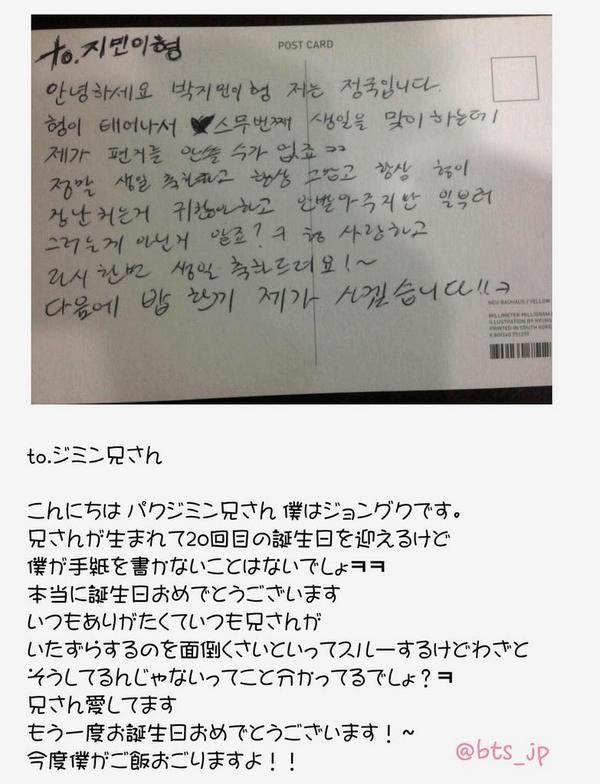 to.지민이형
POST CARD
안녕하세요 박지민이형 저는 정국입니다.
형이 태어나서 스무번째 생일을 맞이하는데
제가 편지를 안쓸 수가 없죠ㅋㅋ
정말 생일 축하하고 항상 고맙고 항상 형이
장난치는거 귀찮아하고 안받아주지만 일부러
그러는게 아닌거 알죠? ㅋ 형 사랑하고
다시한번 생일 축하드려요!~
다음에 밥 한끼 제가 사겠습니다!!ㅋ
NEU BAUHAUS / YELLOW
MILLIMETER MILLIGRAM
ILLUSTRATION BY HYUN
PRINTED IN SOUTH KORE
to.ジミン兄さん
こんにちは パクジミン兄さん 僕はジョングクです。
兄さんが生まれて20回目の誕生日を迎えるけど
僕が手紙を書かないことはないでしょㅋㅋ
本当に誕生日おめでとうございます
いつもありがたくていつも兄さんが
いたずらするのを面倒くさいといってスルーするけどわざと
そうしてるんじゃないってこと分かってるでしょ？ㅋ
兄さん愛してます
もう一度お誕生日おめでとうございます！~
今度僕がご飯おごりますよ！！
@bts_jp